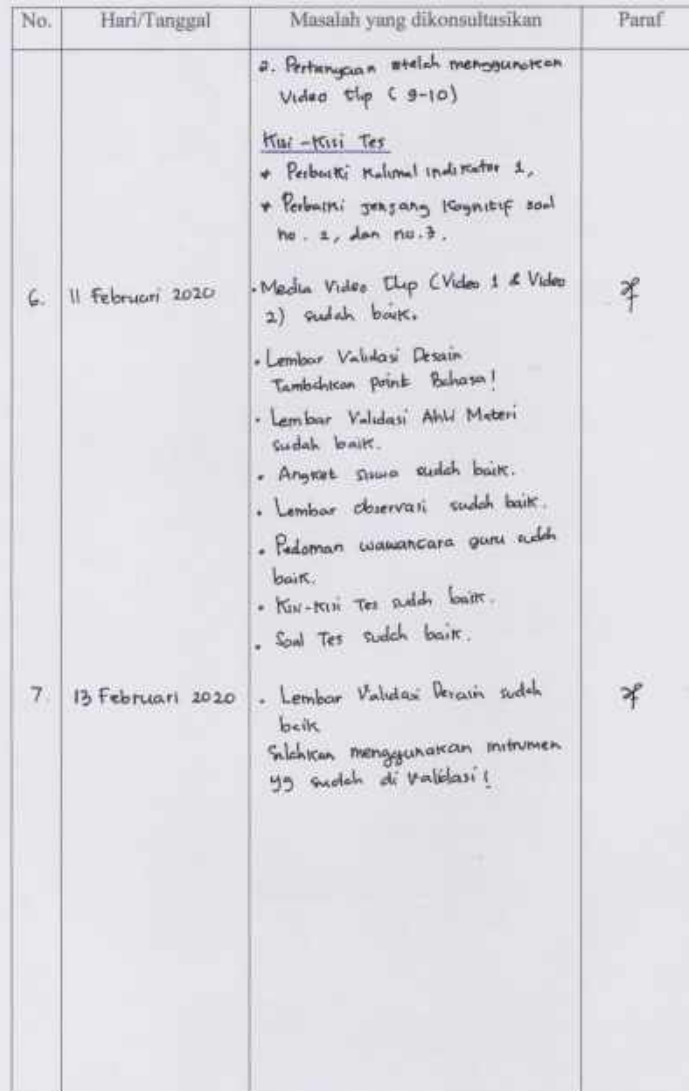 No. Hari/Tanggal Masalah yang dikonsultasikan Paraf
2. Pertanyaan setelah menggunakan
Video Clip ( 9-10)
Kisi-Kisi Tes
* Perbaiki Kalimat indikator 1,
* Perbaiki jenjang Kognitif soal
no. 2, dan no.3.
6. 11 Februari 2020 • Media Video Clip (Video 1 & Video
2) sudah baik.
• Lembar Validasi Desain
Tambahkan point Bahasa!
• Lembar Validasi Ahli Materi
sudah baik.
• Angket siswa sudah baik.
• Lembar observasi sudah baik.
• Pedoman wawancara guru sudah
baik.
• Kisi-Kisi Tes sudah baik.
• Soal Tes sudah baik.
7. 13 Februari 2020 • Lembar Validasi Desain sudah
baik
Silahkan menggunakan instrumen
yg sudah di validasi!